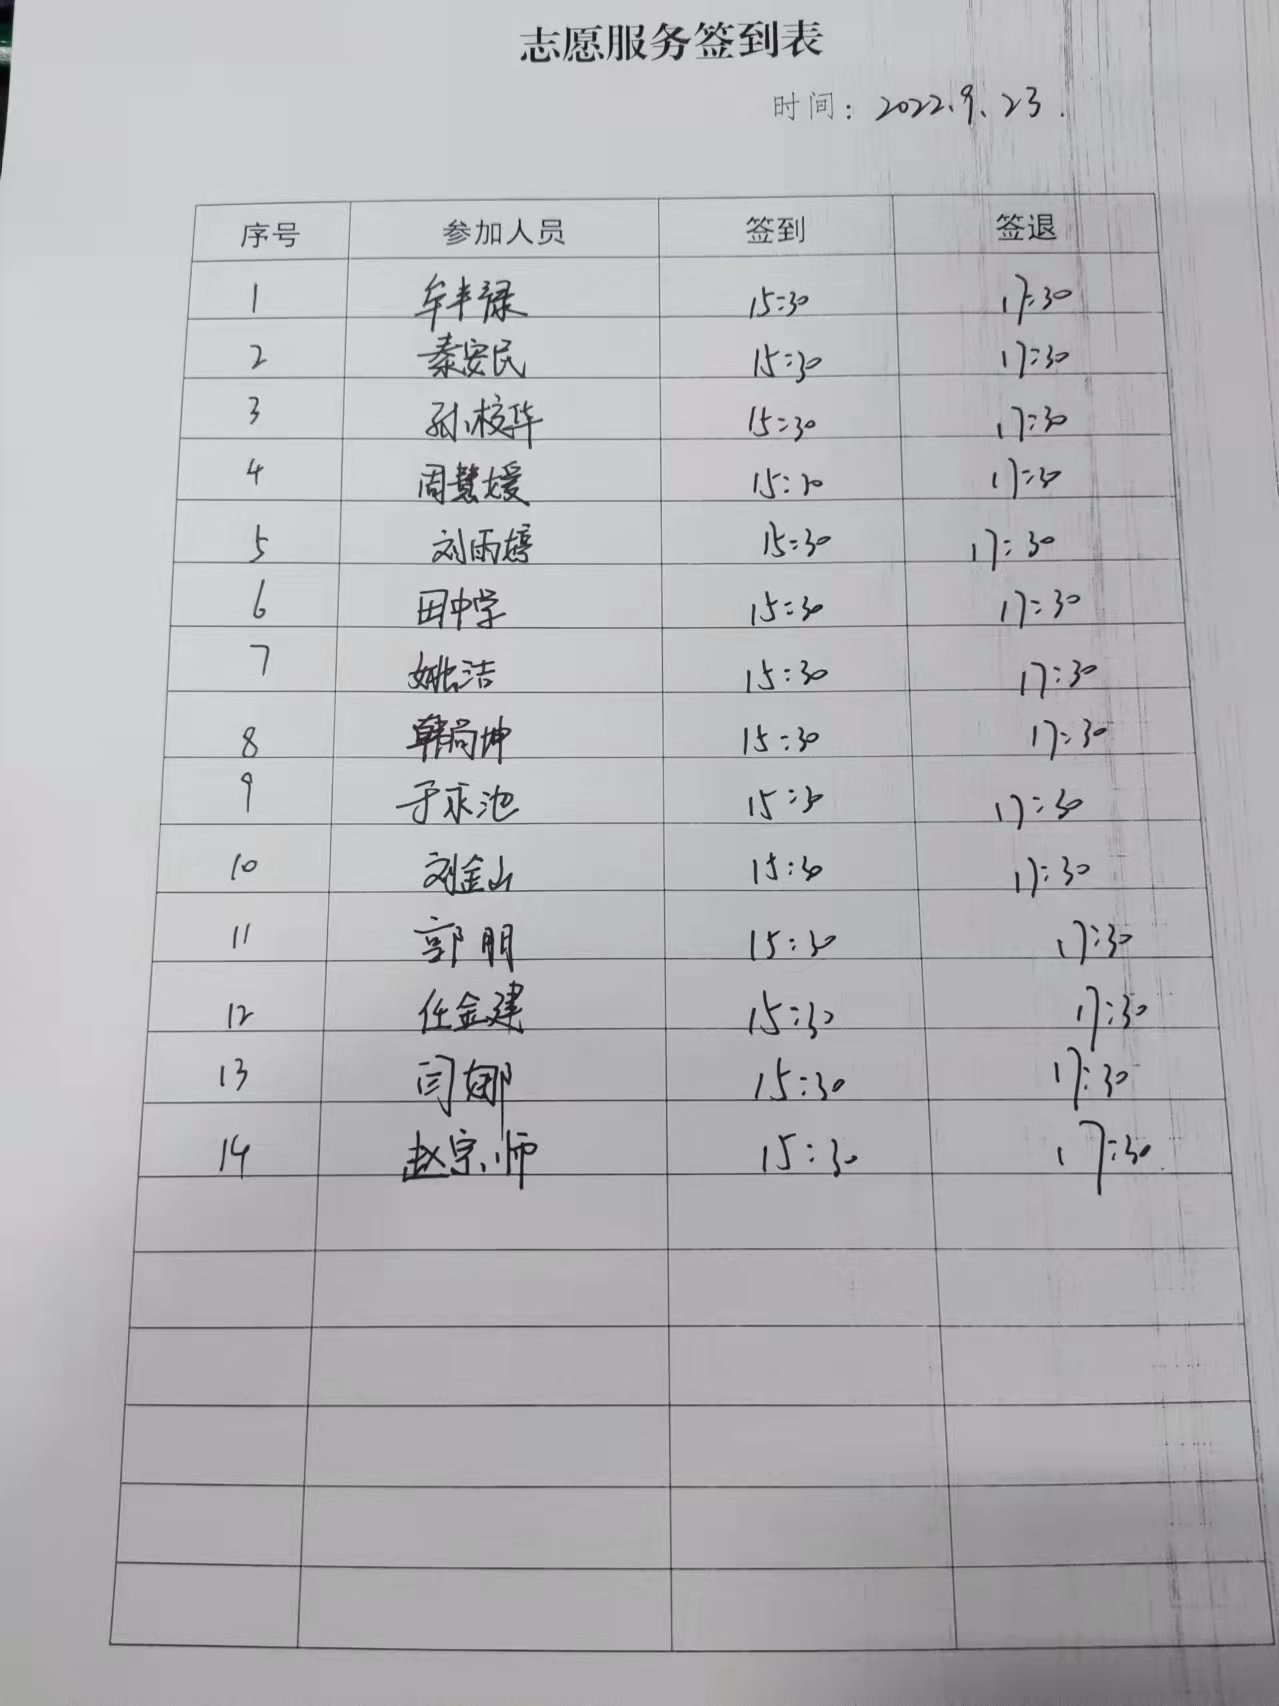 志愿服务签到表
时间：2022.9.23.
序号 参加人员 签到 签退
1 牟丰禄 15:30 17:30
2 秦安民 15:30 17:30
3 孙校华 15:30 17:30
4 周慧媛 15:30 17:30
5 刘雨婷 15:30 17:30
6 田中学 15:30 17:30
7 姚洁 15:30 17:30
8 韩尚坤 15:30 17:30
9 于永池 15:30 17:30
10 刘金山 15:30 17:30
11 郭朋 15:30 17:30
12 任金建 15:30 17:30
13 闫娜 15:30 17:30
14 赵宗师 15:30 17:30